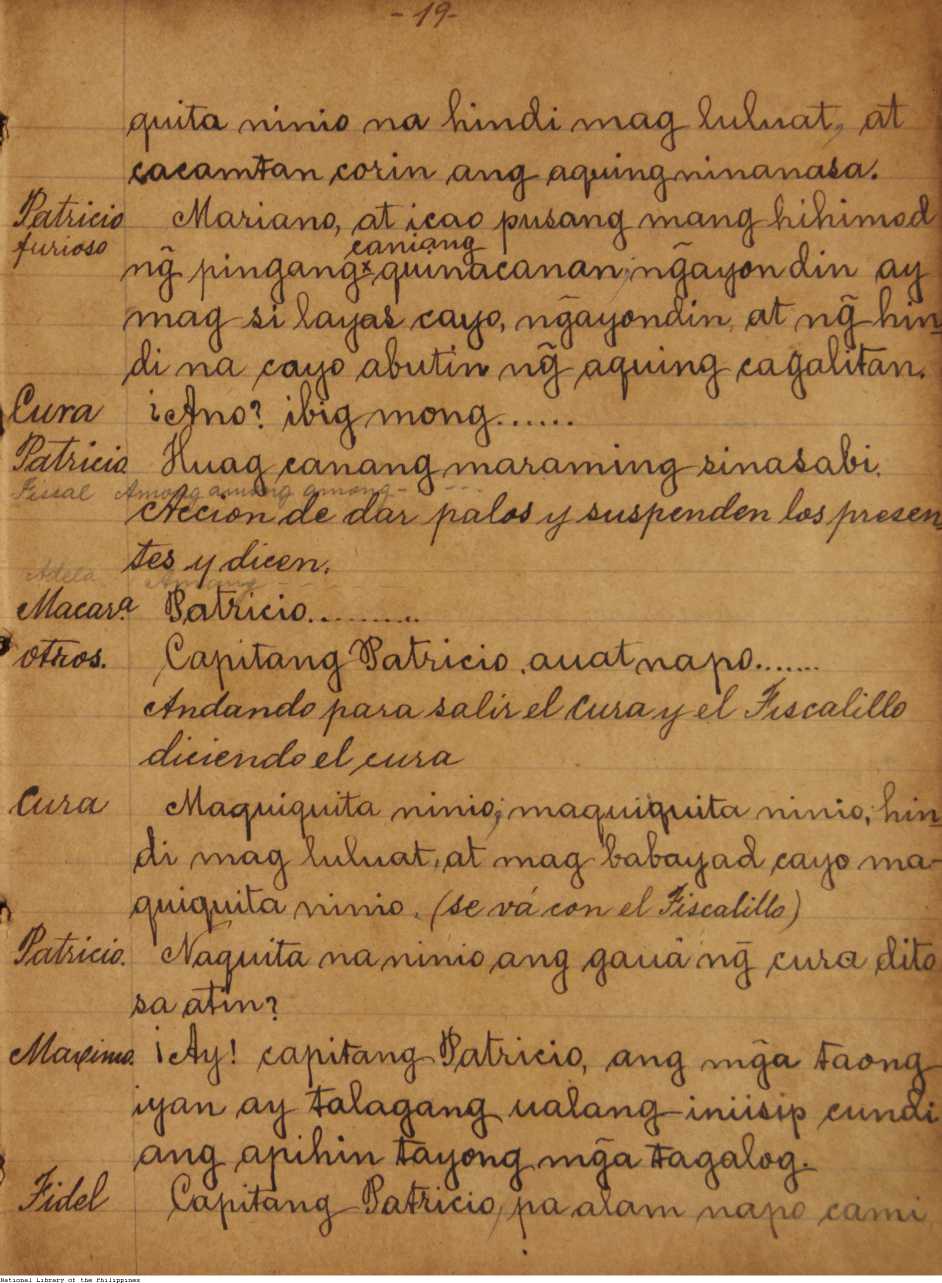 - 19 -
quita ninio na hindi mag luluat, at
cacamtan corin ang aquing ninanasa.
Patricio Mariano, at icao pusang mang hihimod
furioso caniang
ng̃ pingang x quinacanan, ng̃ayon din ay
mag si layas cayo, ng̃ayondin, at ng̃ hin-
di na cayo abutin ng̃ aquing cagalitan.
Cura ¡Ano? ibig mong......
Patricio Huag canang maraming sinasabi.
Fiscal Among among among - - - -
Accion de dar palos y suspenden los presen-
tes y dicen.
Adela Amang - - - -
Macar.a Patricio..........
otros. Capitang Patricio, auat napo.......
Andando para salir el Cura y el Fiscalillo
diciendo el cura
Cura Maquiquita ninio, maquiquita ninio, hin-
di mag luluat, at mag babayad cayo ma-
quiquita ninio. (se vá con el Fiscalillo)
Patricio. Naquita na ninio ang gauá ng̃ cura dito
sa atin?
Maximo. ¡Ay! capitang Patricio, ang mg̃a taong
iyan ay talagang ualang iniisip cundi
ang apihin tayong mg̃a tagalog.
Fidel Capitang Patricio, pa alam napo cami
National Library of the Philippines